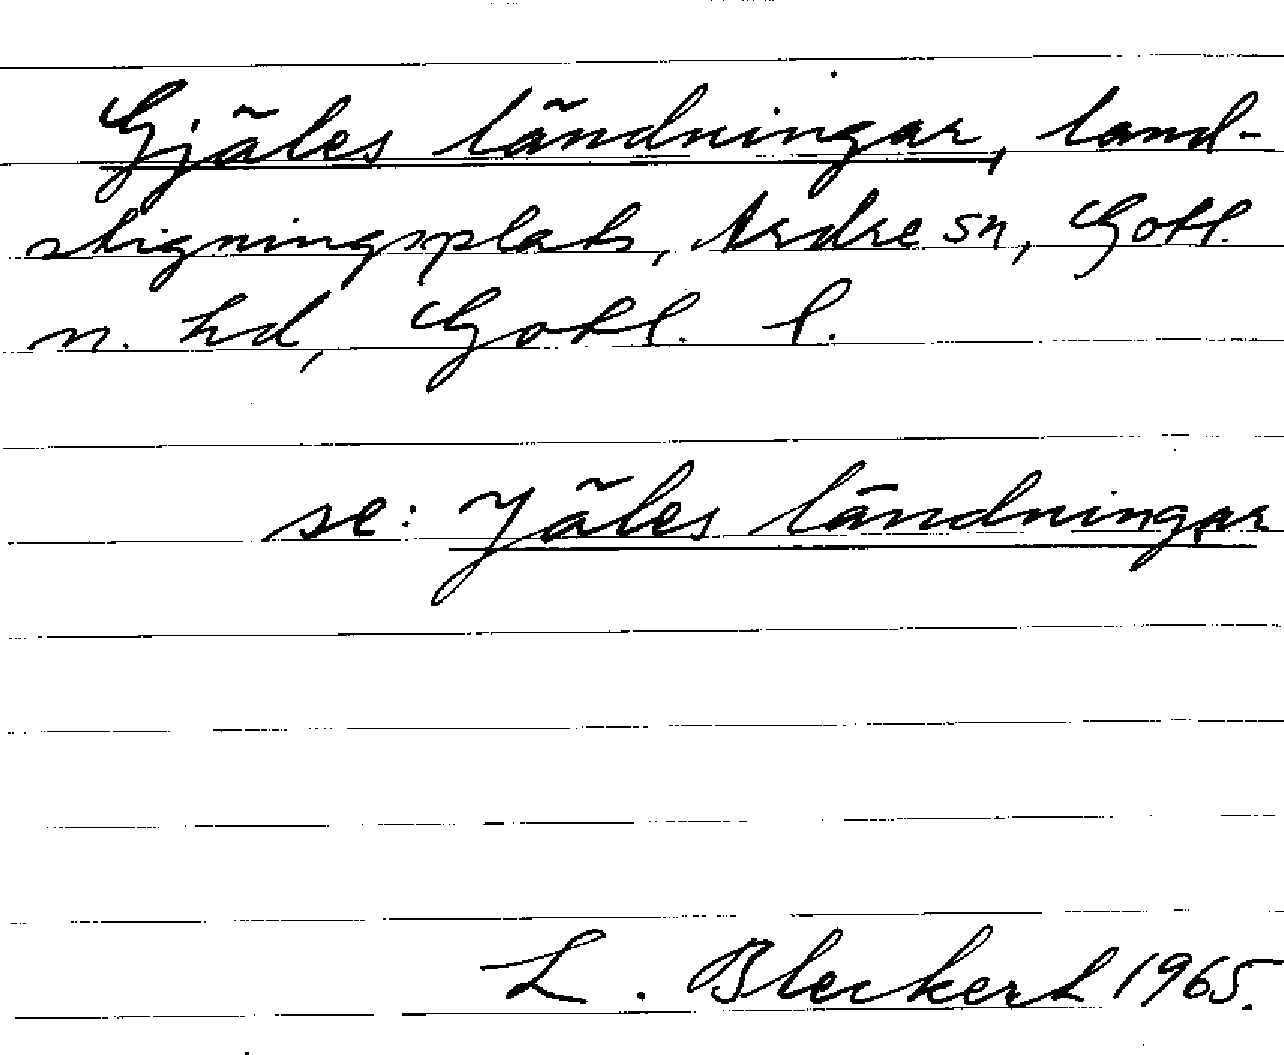 Gjäles ländningar, land-
stigningsplats, Ardre sn, Gotl.
n. hd, Gotl. l.
se: Jäles ländningar
L. Bleckert 1965.